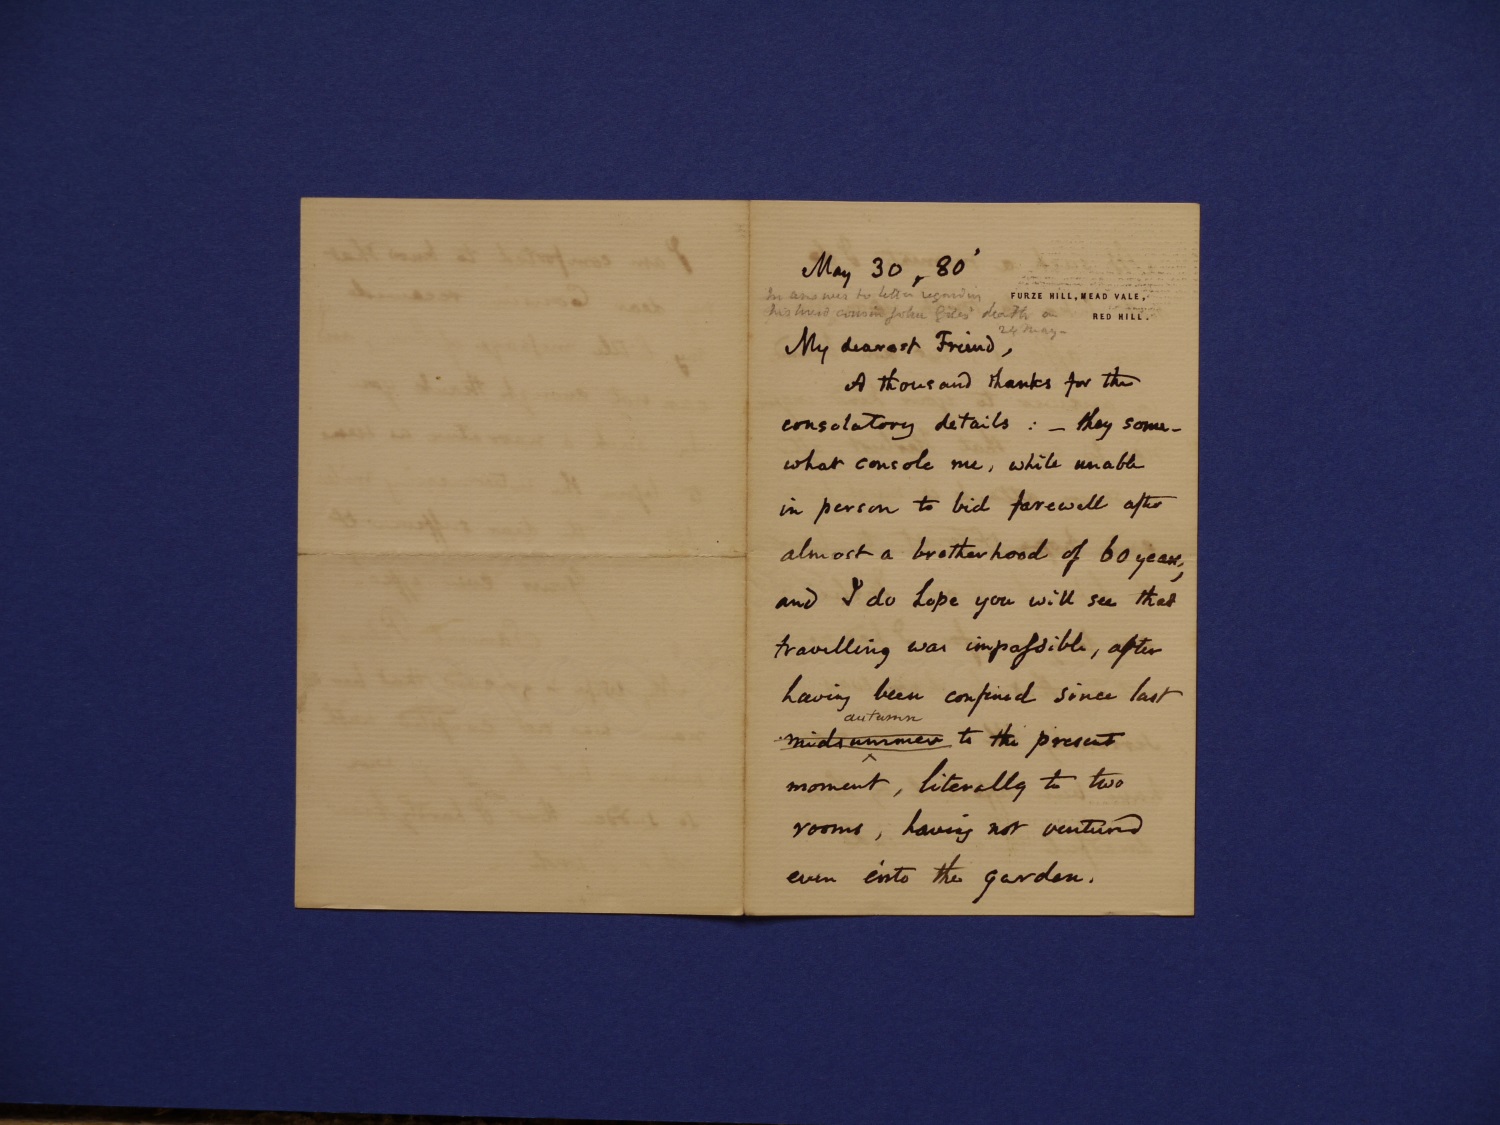 May 30, 80'
In answer to letter regarding
his dear cousin John Giles' death on
24 May-
FURZE HILL, MEAD VALE,
RED HILL.
My dearest Friend,
A thousand thanks for the
consolatory details : – they some-
what console me, while unable
in person to bid farewell after
almost a brotherhood of 60 years,
and I do hope you will see that
travelling was impossible, after
having been confined since last
autumn
midsummer to the present
moment, literally to two
rooms, having not ventured
even into the garden.